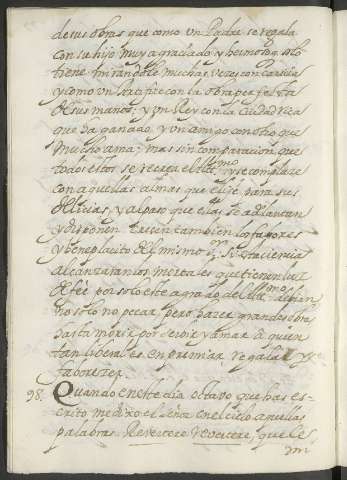 de sus obras que como un Padre se regala
con su hijo muy agraciado y hermoso, q. solo
tiene mirandole muchas veces con caricia
y como un Artifice con la obra perfecta
de sus manos, y un Rey con la Ciudad rica
que ha ganado, y un amigo con otro que
mucho ama; mas sin comparacion que
todos estos se recrea el Alt.mo y se complaze
con aquellas almas que elije para sus
delicias, y al paso que ellas se adelantan
y disponen crecen tambien los fabores
y beneplacito del mismo S.or Si esta ciencia
alcanzaran los mortales que tienen luz
de fee por solo este agrado del Alt.mo debian
no solo no pecar, pero hazer grandes obras
hasta morir por servir y amar a quien
tan liberal es en premiar, regalar y
faborezer.
98. Quando en este dia octavo que has es-
crito me dixo el Señor en el cielo aquellas
palabras. Revertere revertere, que les